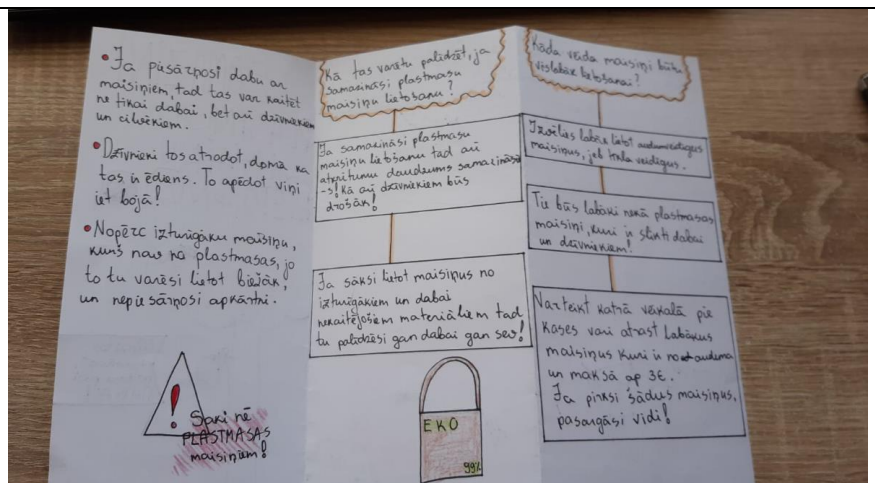 • Ja piesārņosi dabu ar
maisiņiem, tad tas var kaitēt
ne tikai dabai, bet arī dzīvniekiem
un cilvēkiem.
• Dzīvnieki tos atrodot, domā ka
tas ir ēdiens. To apēdot viņi
iet bojā!
• Nopērc izturīgāku maisiņu,
kurš nav no plastmasas, jo
to tu varēsi lietot biežāk,
un nepiesārņosi apkārtni.
!
Saki nē
PLASTMASAS
maisiņiem!
Kā tas varētu palīdzēt, ja
samazināsi plastmasu
maisiņu lietošanu?
Ja samazināsi plastmasu
maisiņu lietošanu tad arī
atkritumu daudzums samazināsie
-s! Kā arī dzīvniekiem būs
drošāk!
Ja sāksi lietot maisiņus no
izturīgākiem un dabai
nekaitējošiem materiāliem tad
tu palīdzēsi gan dabai gan sev!
EKO
99%
Kāda veida maisiņi būtu
vislabāk lietošanai?
Izvēlies labāk lietot audumveidīgus
maisiņus, jeb tīkla veidīgus.
Tie būs labāki nekā plastmasas
maisiņi, kuri ir slikti dabai
un dzīvniekiem!
Narteikt katrā veikalā pie
kases vari atrast labākus
maisiņus kuri ir no audema
un maksā ap 3€.
Ja pirksi šādus maisiņus,
pasargāsi vidi!